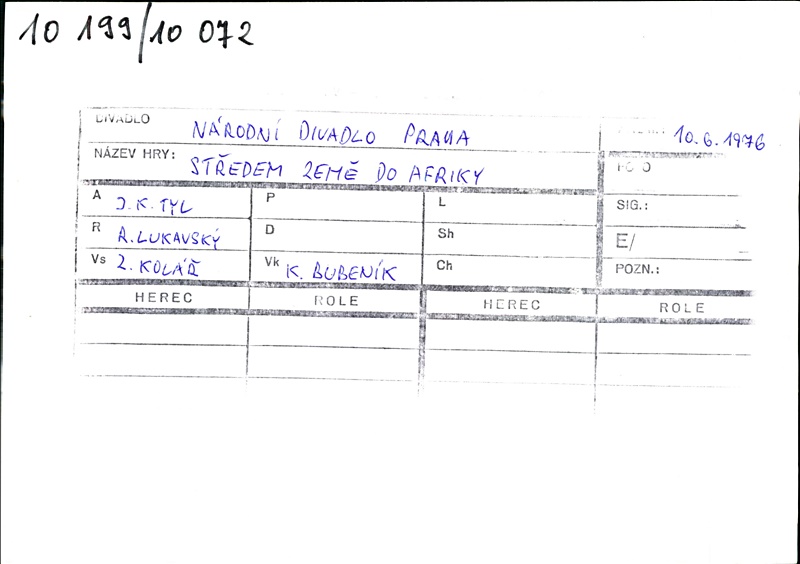 10 199/10 072
DIVADLO NÁRODNÍ DIVADLO PRAHA 10.6.1976
NÁZEV HRY: STŘEDEM ZEMĚ DO AFRIKY
A J.K.TYL P L SIG.:
R R.LUKAVSKÝ D Sh E/
Vs Z. KOLÁŘ Vk K. BUBENÍK Ch POZN.:
HEREC ROLE HEREC ROLE